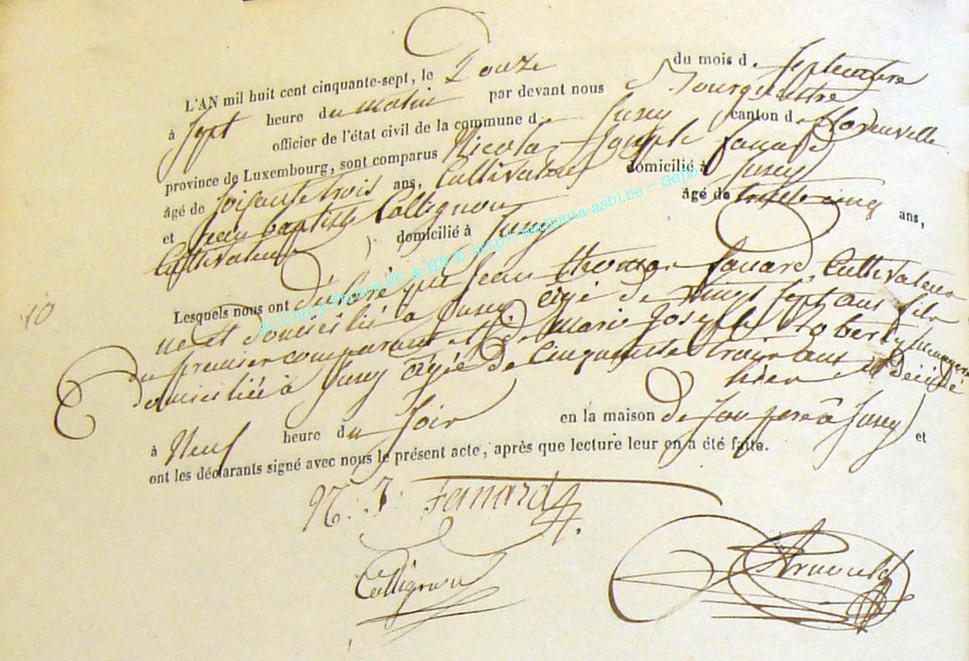 L'AN mil huit cent cinquante-sept, le Douze du mois de Septembre
à Sept heure du matin par devant nous Bourguemestre
officier de l'état civil de la commune d Juzy canton d florenville
province de Luxembourg, sont comparus Nicolas Joseph fanard
âgé de soixante trois ans, Cultivateur domicilié à Juzy
et jean baptiste Collignon âgé de trente cinq ans,
Cultivateur domicilié à Juzy
10
Lesquels nous ont déclaré que Jean thomas fanard, Cultivateur
né et domicilié à Juzy. agé de vingt sept ans fils
du premier comparant et de marie Joseph Roberty
domiciliée à Juzy agée de cinquante trois ans est décédé
hier
à Neuf heure du soir en la maison de son père à Juzy et
ont les déclarants signé avec nous le présent acte, après que lecture leur en a été faite.
N. J. Fanard
Collignon
Arnould